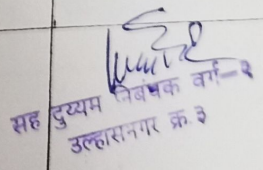 सह दुय्यम निबंधक वर्ग-२
उल्हासनगर क्र. ३